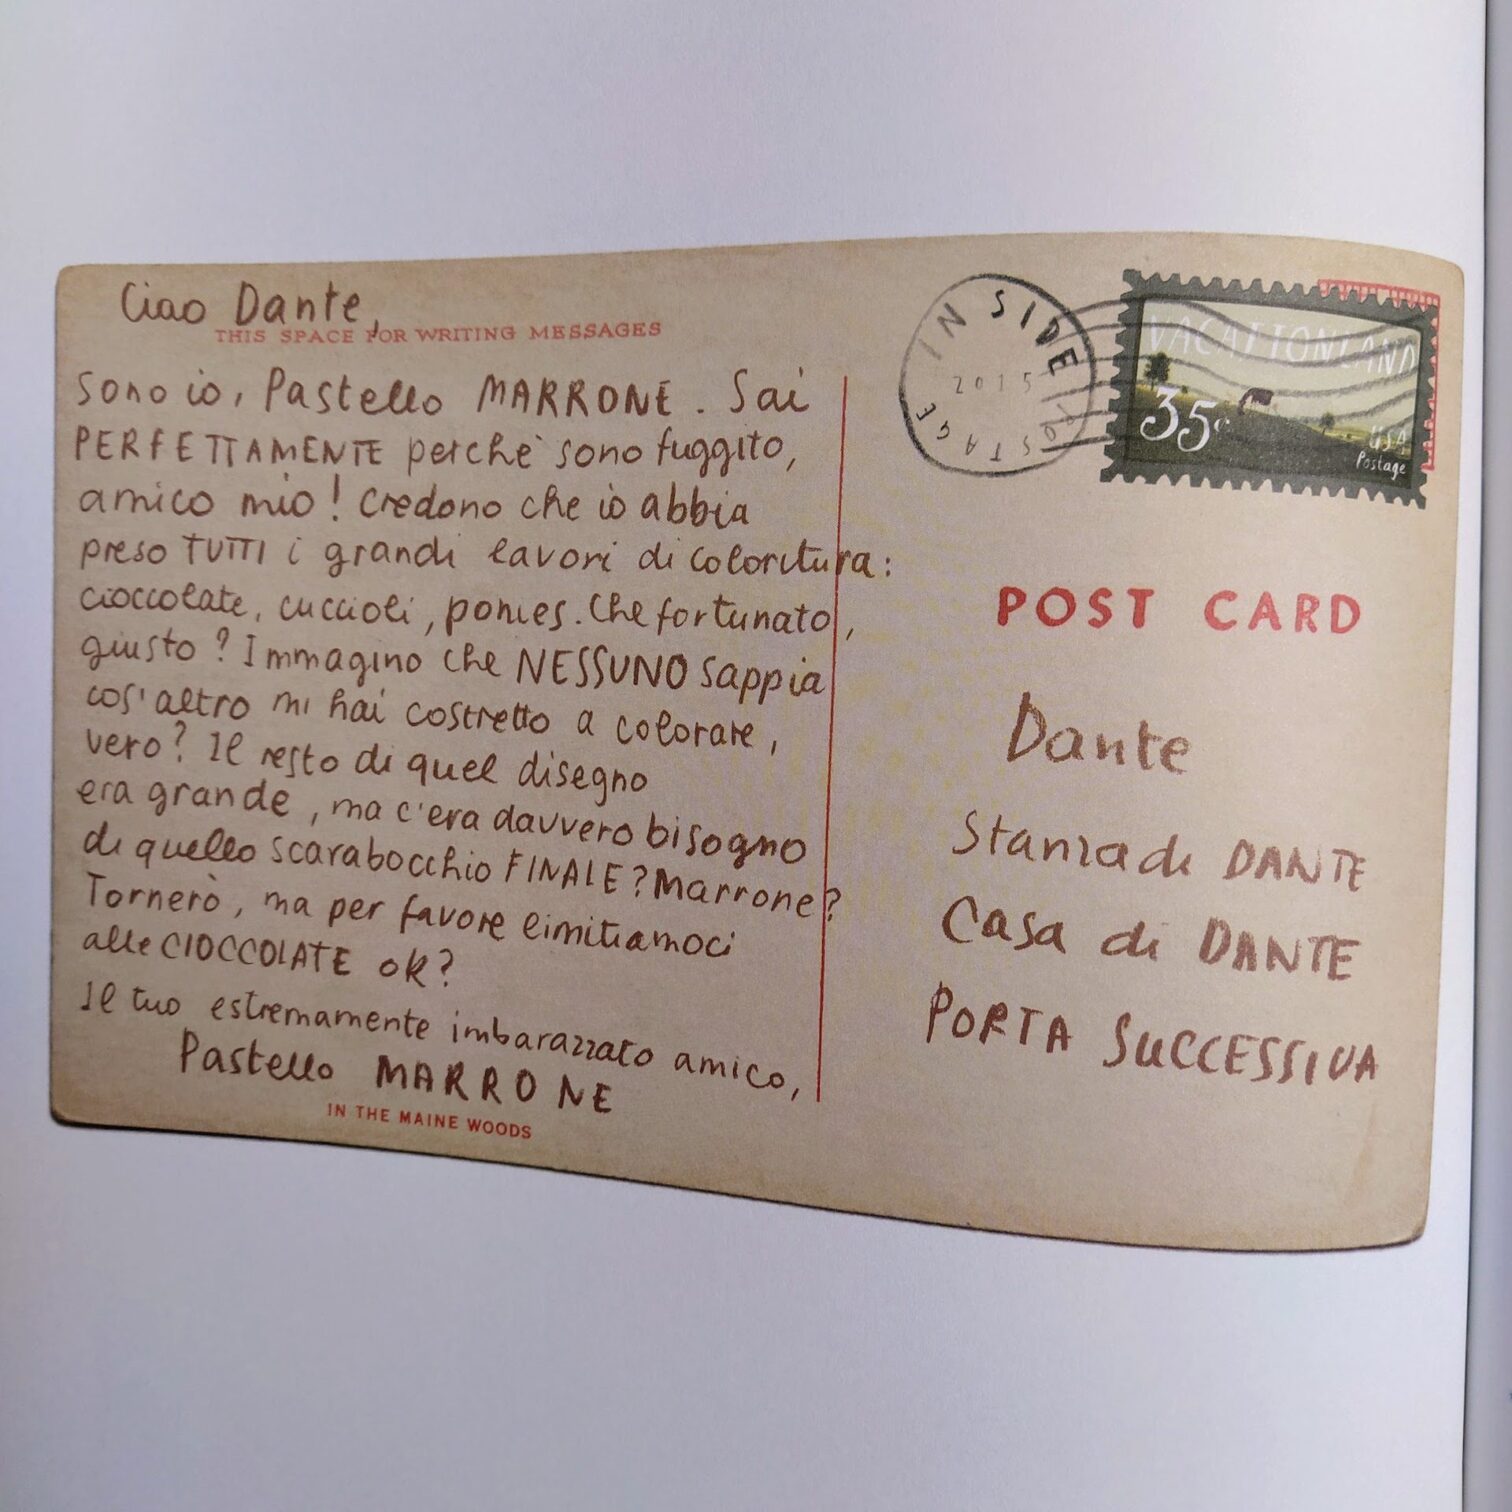 Ciao Dante,
THIS SPACE FOR WRITING MESSAGES
sono io, Pastello MARRONE. Sai
PERFETTAMENTE perchè sono fuggito,
amico mio! Credono che io abbia
preso TUTTI i grandi lavori di coloritura:
cioccolate, cuccioli, ponies. Che fortunato,
giusto? Immagino che NESSUNO sappia
cos'altro mi hai costretto a colorare,
vero? Il resto di quel disegno
era grande, ma c'era davvero bisogno
di quello scarabocchio FINALE? Marrone?
Tornerò, ma per favore limitiamoci
alle CIOCCOLATE ok?
Il tuo estremamente imbarazzato amico,
Pastello MARRONE
IN THE MAINE WOODS
IN SIDE
2015
POSTAGE
POSTAGE
VACATIONLAND
35c
USA
Postage
POST CARD
Dante
Stanza di DANTE
Casa di DANTE
PORTA SUCCESSIVA